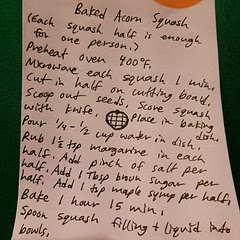 Baked Acorn Squash
(Each squash half is enough
for one person.)
Preheat oven 400°F.
Microwave each squash 1 min.
Cut in half on cutting board,
Scoop out seeds. Score squash
with knife. Place in baking
dish.
Pour 1/4 - 1/2 cup water in dish.
Rub 1 1/2 tsp margarine in each
half. Add pinch of salt per
half. Add 1 Tbsp brown sugar per
half. Add 1 tsp maple syrup per half.
Bake 1 hour 15 min.
Spoon squash filling + liquid into
bowls.